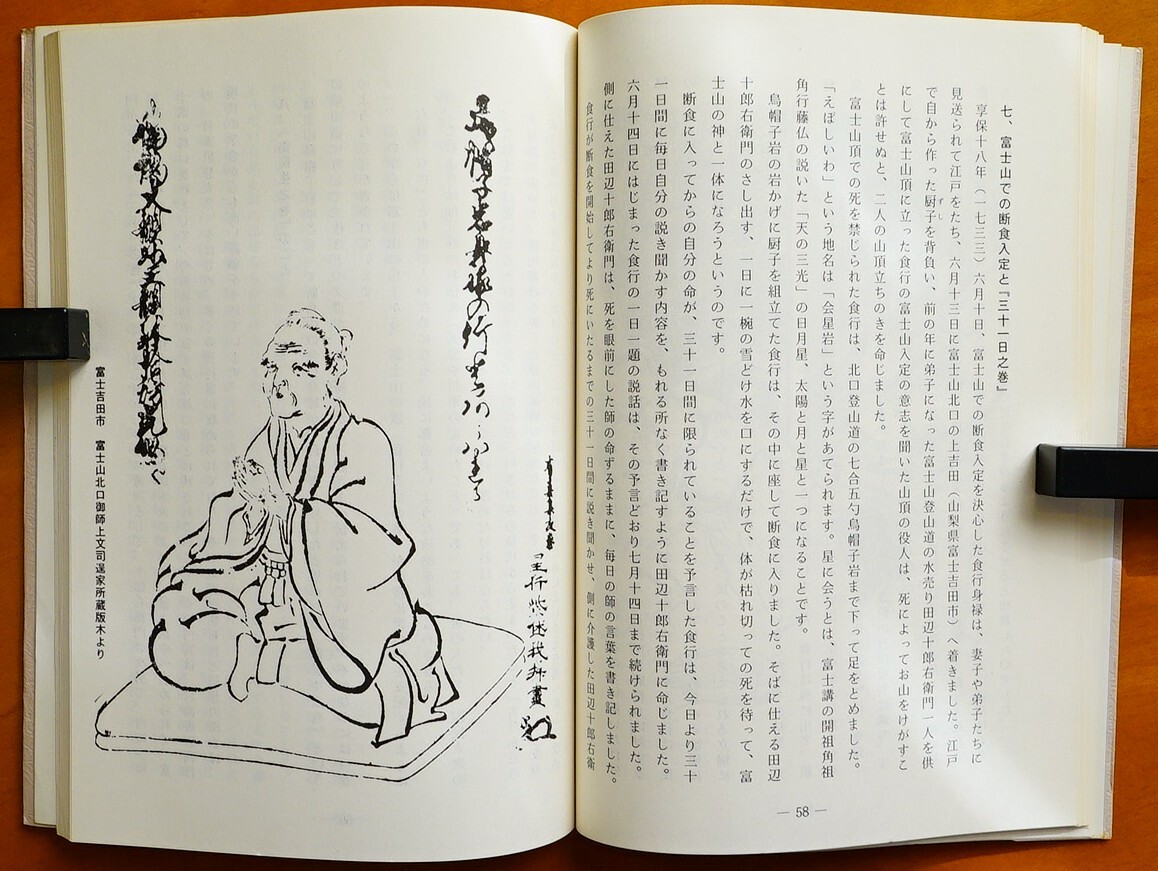 七、富士山での断食入定と『三十一日之巻』
享保十八年（一七三三）六月十日、富士山での断食入定を決心した食行身禄は、妻子や弟子たちに
見送られて江戸をたち、六月十三日に富士山北口の上吉田（山梨県富士吉田市）へ着きました。江戸
で自から作った厨子を背負い、前の年に弟子になった富士山登山道の水売り田辺十郎右衛門一人を供
ずし
にして富士山頂に立った食行の富士山入定の意志を聞いた山頂の役人は、死によってお山をけがすこ
とは許せぬと、二人の山頂立ちのきを命じました。
富士山頂での死を禁じられた食行は、北口登山道の七合五勺烏帽子岩まで下って足をとめました。
「えぼしいわ」という地名は「会星岩」という字があてられます。星に会うとは、富士講の開祖角祖
角行藤仏の説いた「天の三光」の日月星、太陽と月と星と一つになることです。
烏帽子岩の岩かげに厨子を組立てた食行は、その中に座して断食に入りました。そばに仕える田辺
十郎右衛門のさし出す、一日に一椀の雪どけ水を口にするだけで、体が枯れ切っての死を待って、富
士山の神と一体になろうというのです。
断食に入ってからの自分の命が、三十一日間に限られていることを予言した食行は、今日より三十
一日間に毎日自分の説き聞かす内容を、もれる所なく書き記すように田辺十郎右衛門に命じました。
六月十四日にはじまった食行の一日一題の説話は、その予言どおり七月十四日まで続けられました。
側に仕えた田辺十郎右衛門は、死を眼前にした師の命ずるままに、毎日の師の言葉を書き記しました。
食行が断食を開始してより死にいたるまでの三十一日間に説き聞かせ、側に介護した田辺十郎右衛
— 58 —
富士吉田市　富士山北口御師上文司暹家所蔵版木より